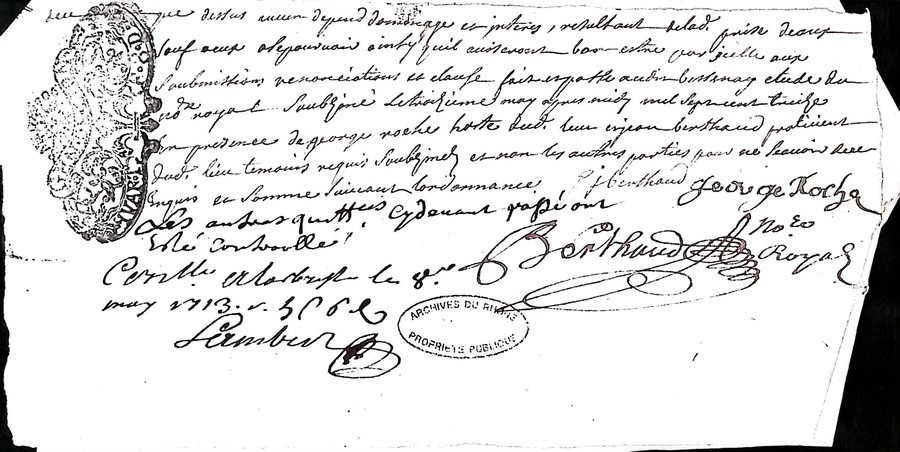 que dessus aucun depend dommage et interes, resultant delad. prise deaux
sauf aeux asepourvoir ainsy quil auiseront bon estre par icelle aux
Soubmissions renonciations et clause fait et passé audit bessenay etude du
no.re royal Soubsigné Letroisieme may apres midy mil sept cent treize
En presence de george roche hoste dud. lieu et jean berthaud praticient
dud. lieu temoins requis Soubsignés et non les autres parties pour ne scavoir de ce
Enquis et Somme Suivant Lordonnance. J berthaud george Roche
Les autres quittes Cydevant passé ont
Esté Controollé
Berthaud No.re Royal
Con.lle a Larbresle le 8.e
may 1713. r.
Lambert
ARCHIVES DU RHÔNE
PROPRIÉTÉ PUBLIQUE